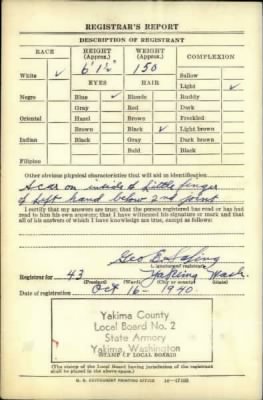 REGISTRAR'S REPORT
DESCRIPTION OF REGISTRANT
RACE HEIGHT (Approx.) WEIGHT (Approx.) COMPLEXION
White ✓ 6' 1½" 150 Sallow
EYES HAIR Light ✓
Negro Blue ✓ Blonde Ruddy
Gray Red Dark
Oriental Hazel Brown Freckled
Brown Black ✓ Light brown
Indian Black Gray Dark brown
Bald Black
Filipino
Other obvious physical characteristics that will aid in identification
Scar on inside of little finger
of left hand below 2nd joint
I certify that my answers are true; that the person registered has read or has had
read to him his own answers; that I have witnessed his signature or mark and that
all of his answers of which I have knowledge are true, except as follows:
Geo E.
(Signature of registrar)
Registrar for 43 Yakima Wash.
(Precinct) (Ward) (City or county) (State)
Date of registration Oct 16 - 1940
Yakima County
Local Board No. 2
State Armory
Yakima, Washington
(STAMP OF LOCAL BOARD)
(The stamp of the Local Board having jurisdiction of the registrant
shall be placed in the above space.)
U. S. GOVERNMENT PRINTING OFFICE